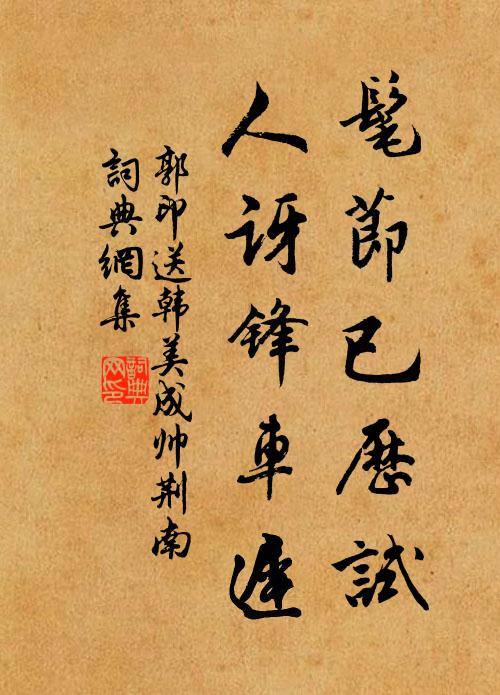 髦節已歷試
人訝鋒車遲
郭印送韩美成帅荆南
詞典網集
詞典网印